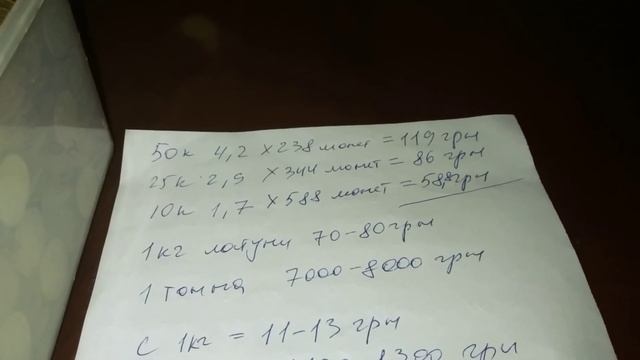 50к 4,2 × 238 монет = 119 грн
25к 2,9 × 344 монет = 86 грн
10к 1,7 × 588 монет = 58,8грн
1кг латуни 70-80грн
1 тонна 7000-8000 грн
С 1кг = 11-13 грн
1300 грн